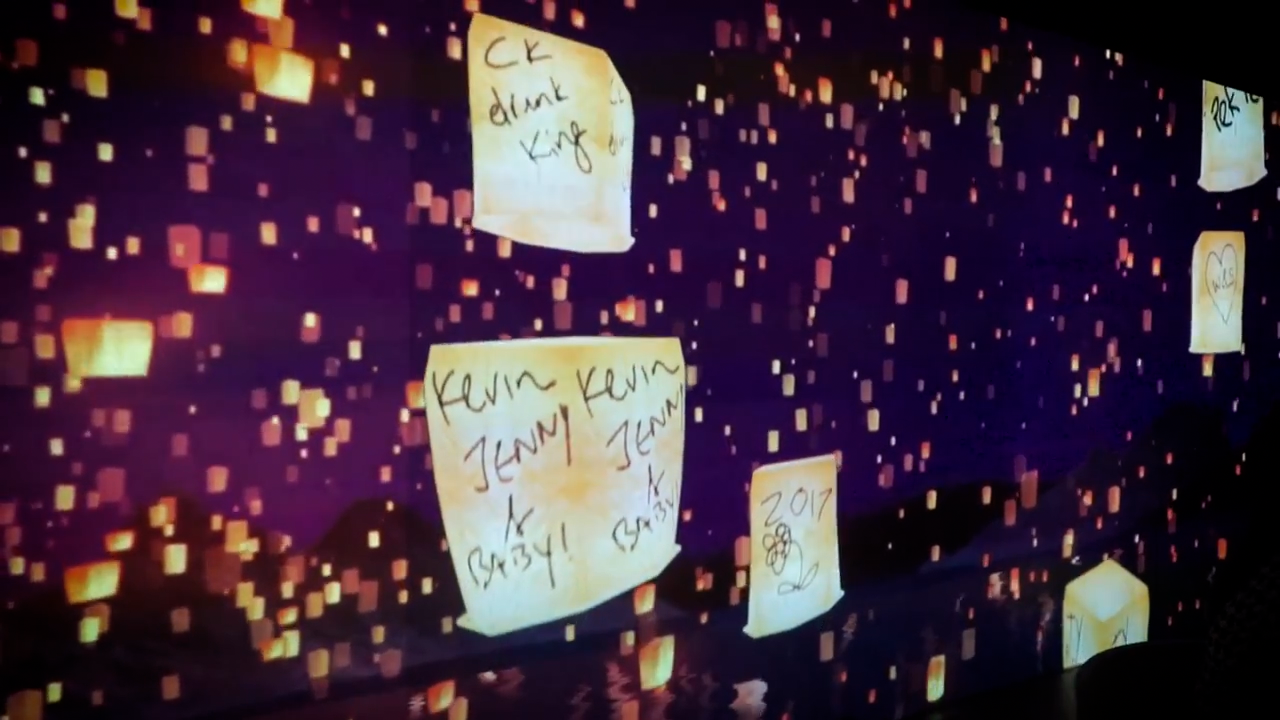 CK
drunk
King
Kevin
JENNY
&
BABY!
Kevin
JENNY
&
BABY!
2017